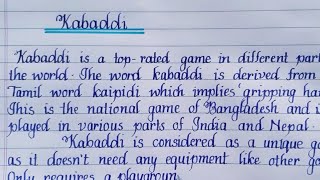 Kabaddi
Kabaddi is a top-rated game in different part
the world. The word kabaddi is derived from
Tamil word kaipidi which implies gripping ha
This is the national game of Bangladesh and i
played in various parts of India and Nepal.
Kabaddi is considered as a unique g
as it doesn't need any equipment like other g
Only requires a playgroun